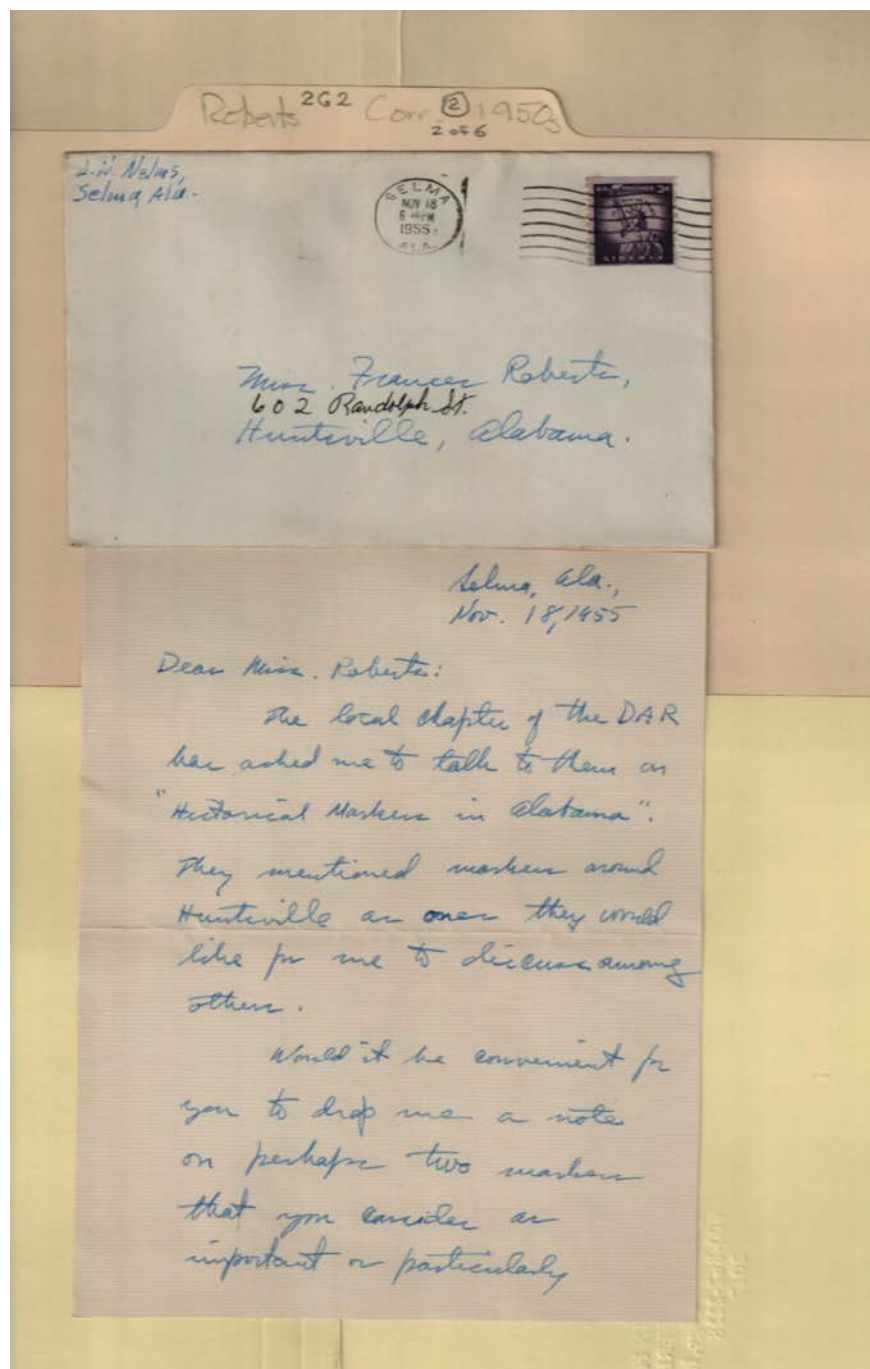 Roberts 2G2 Corr. 2 1950s
2 of 6
Nelms,
Selma Ala.
SELMA
NOV 18
PM
1955
ALA.
3¢
LIBERTY
Miss. Frances Roberts,
602 Randolph St.
Huntsville, Alabama.
Selma, Ala.,
Nov. 18, 1955
Dear Miss. Roberts:
The local chapter of the DAR
has asked me to talk to them on
"Historical Markers in Alabama".
They mentioned markers around
Huntsville as ones they would
like for me to discuss among
others.
Would it be convenient for
you to drop me a note
on perhaps two markers
that you consider as
important or particularly